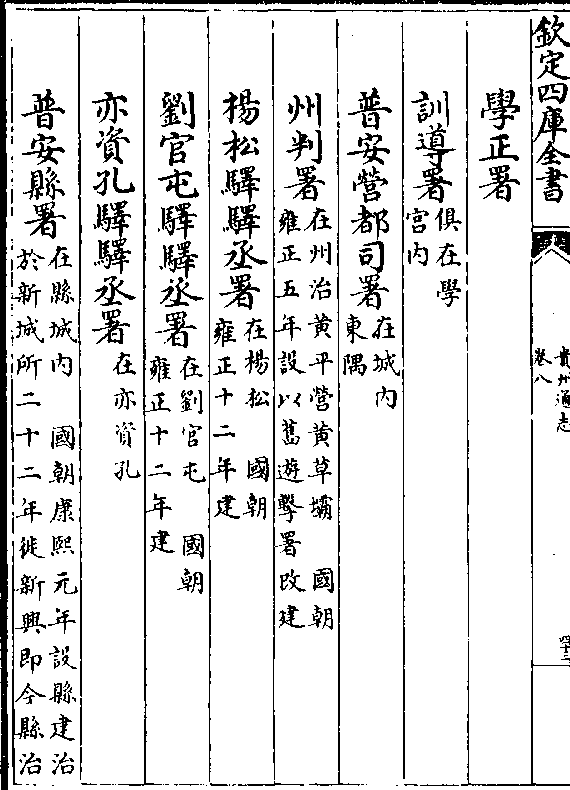 欽定四庫全書
貴州通志
卷八
四十三
學正署
訓導署俱在學
宮内
普安營都司署在城内
東隅
州判署在州治黄平營黄草壩 國朝
雍正五年設以舊遊擊署改建
楊松驛驛丞署在楊松 國朝
雍正十二年建
劉官屯驛驛丞署在劉官屯 國朝
雍正十二年建
亦資孔驛驛丞署在亦資孔
普安縣署在縣城内 國朝康熙元年設縣建治
於新城所二十二年徙新興即今縣治